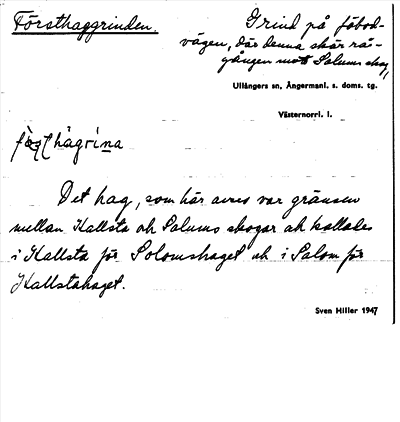 Försthaggrinden.
Grind på fäbod-
vägen, där denna skär rå-
gången mot Salums skog,
Ullångers sn, Ångermanl. s. doms. tg.
Västernorrl. l.
hàgrina
Det hag, som här avses var gränsen
mellan Kallsta och Salums skogar och kallades
i Kallsta för Solomshaget och i Salom för
Kallstahaget.
Sven Hiller 1947